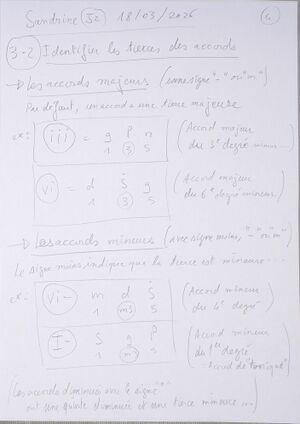 Sandrine J2 18/03/2026
3-2 Identifier les tierces des accords
→ Les accords majeurs (sans signe "-" ou "m")
Par défaut, un accord a une tierce majeure
ex: iii = g p n (Accord majeur
1 3 5 du 3e degré mineur...)
vi = d s g (Accord majeur
1 3 5 du 6e degré mineur)
→ Les accords mineurs (avec signe moins, "-" ou "m")
Le signe moins indique que la tierce est mineure...
ex: vi- m d s (Accord mineur
1 m3 5 degré)
I- s g p (Accord mineur
1 m3 5 du 1er degré
Accord de "tonique")
(Les accords diminués avec le signe "o"
ont une quinte diminuée et une tierce mineure...)